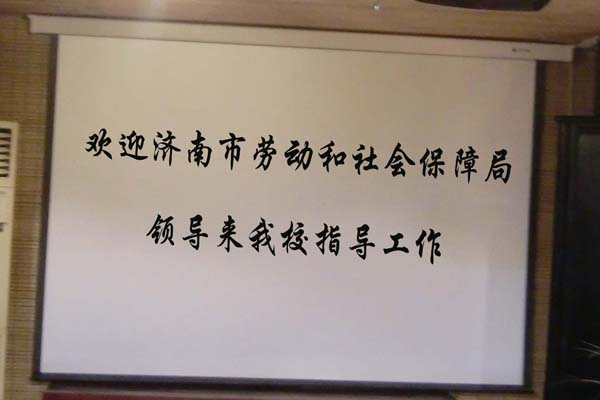 欢迎济南市劳动和社会保障局
领导来我校指导工作